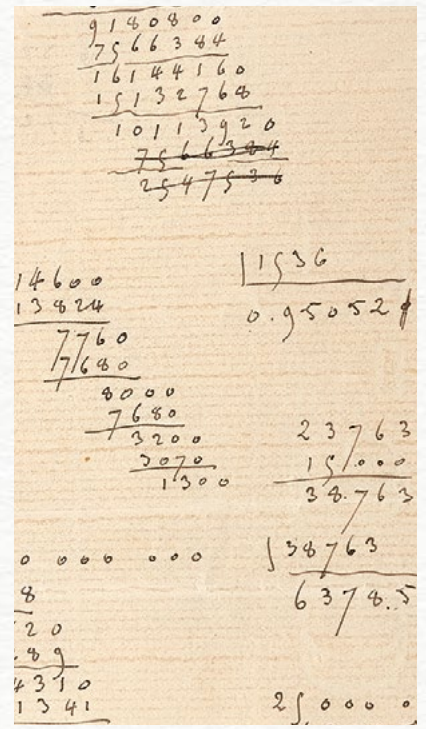 9180800
7566384
16144160
15132768
10113920
7566384
2547536
14600
13824
7760
7680
8000
7680
3200
3070
1300
1536
0.95052
23763
15.000
38.763
38763
6378.5
0 000 000
8
20
89
4310
1341
25 000 0